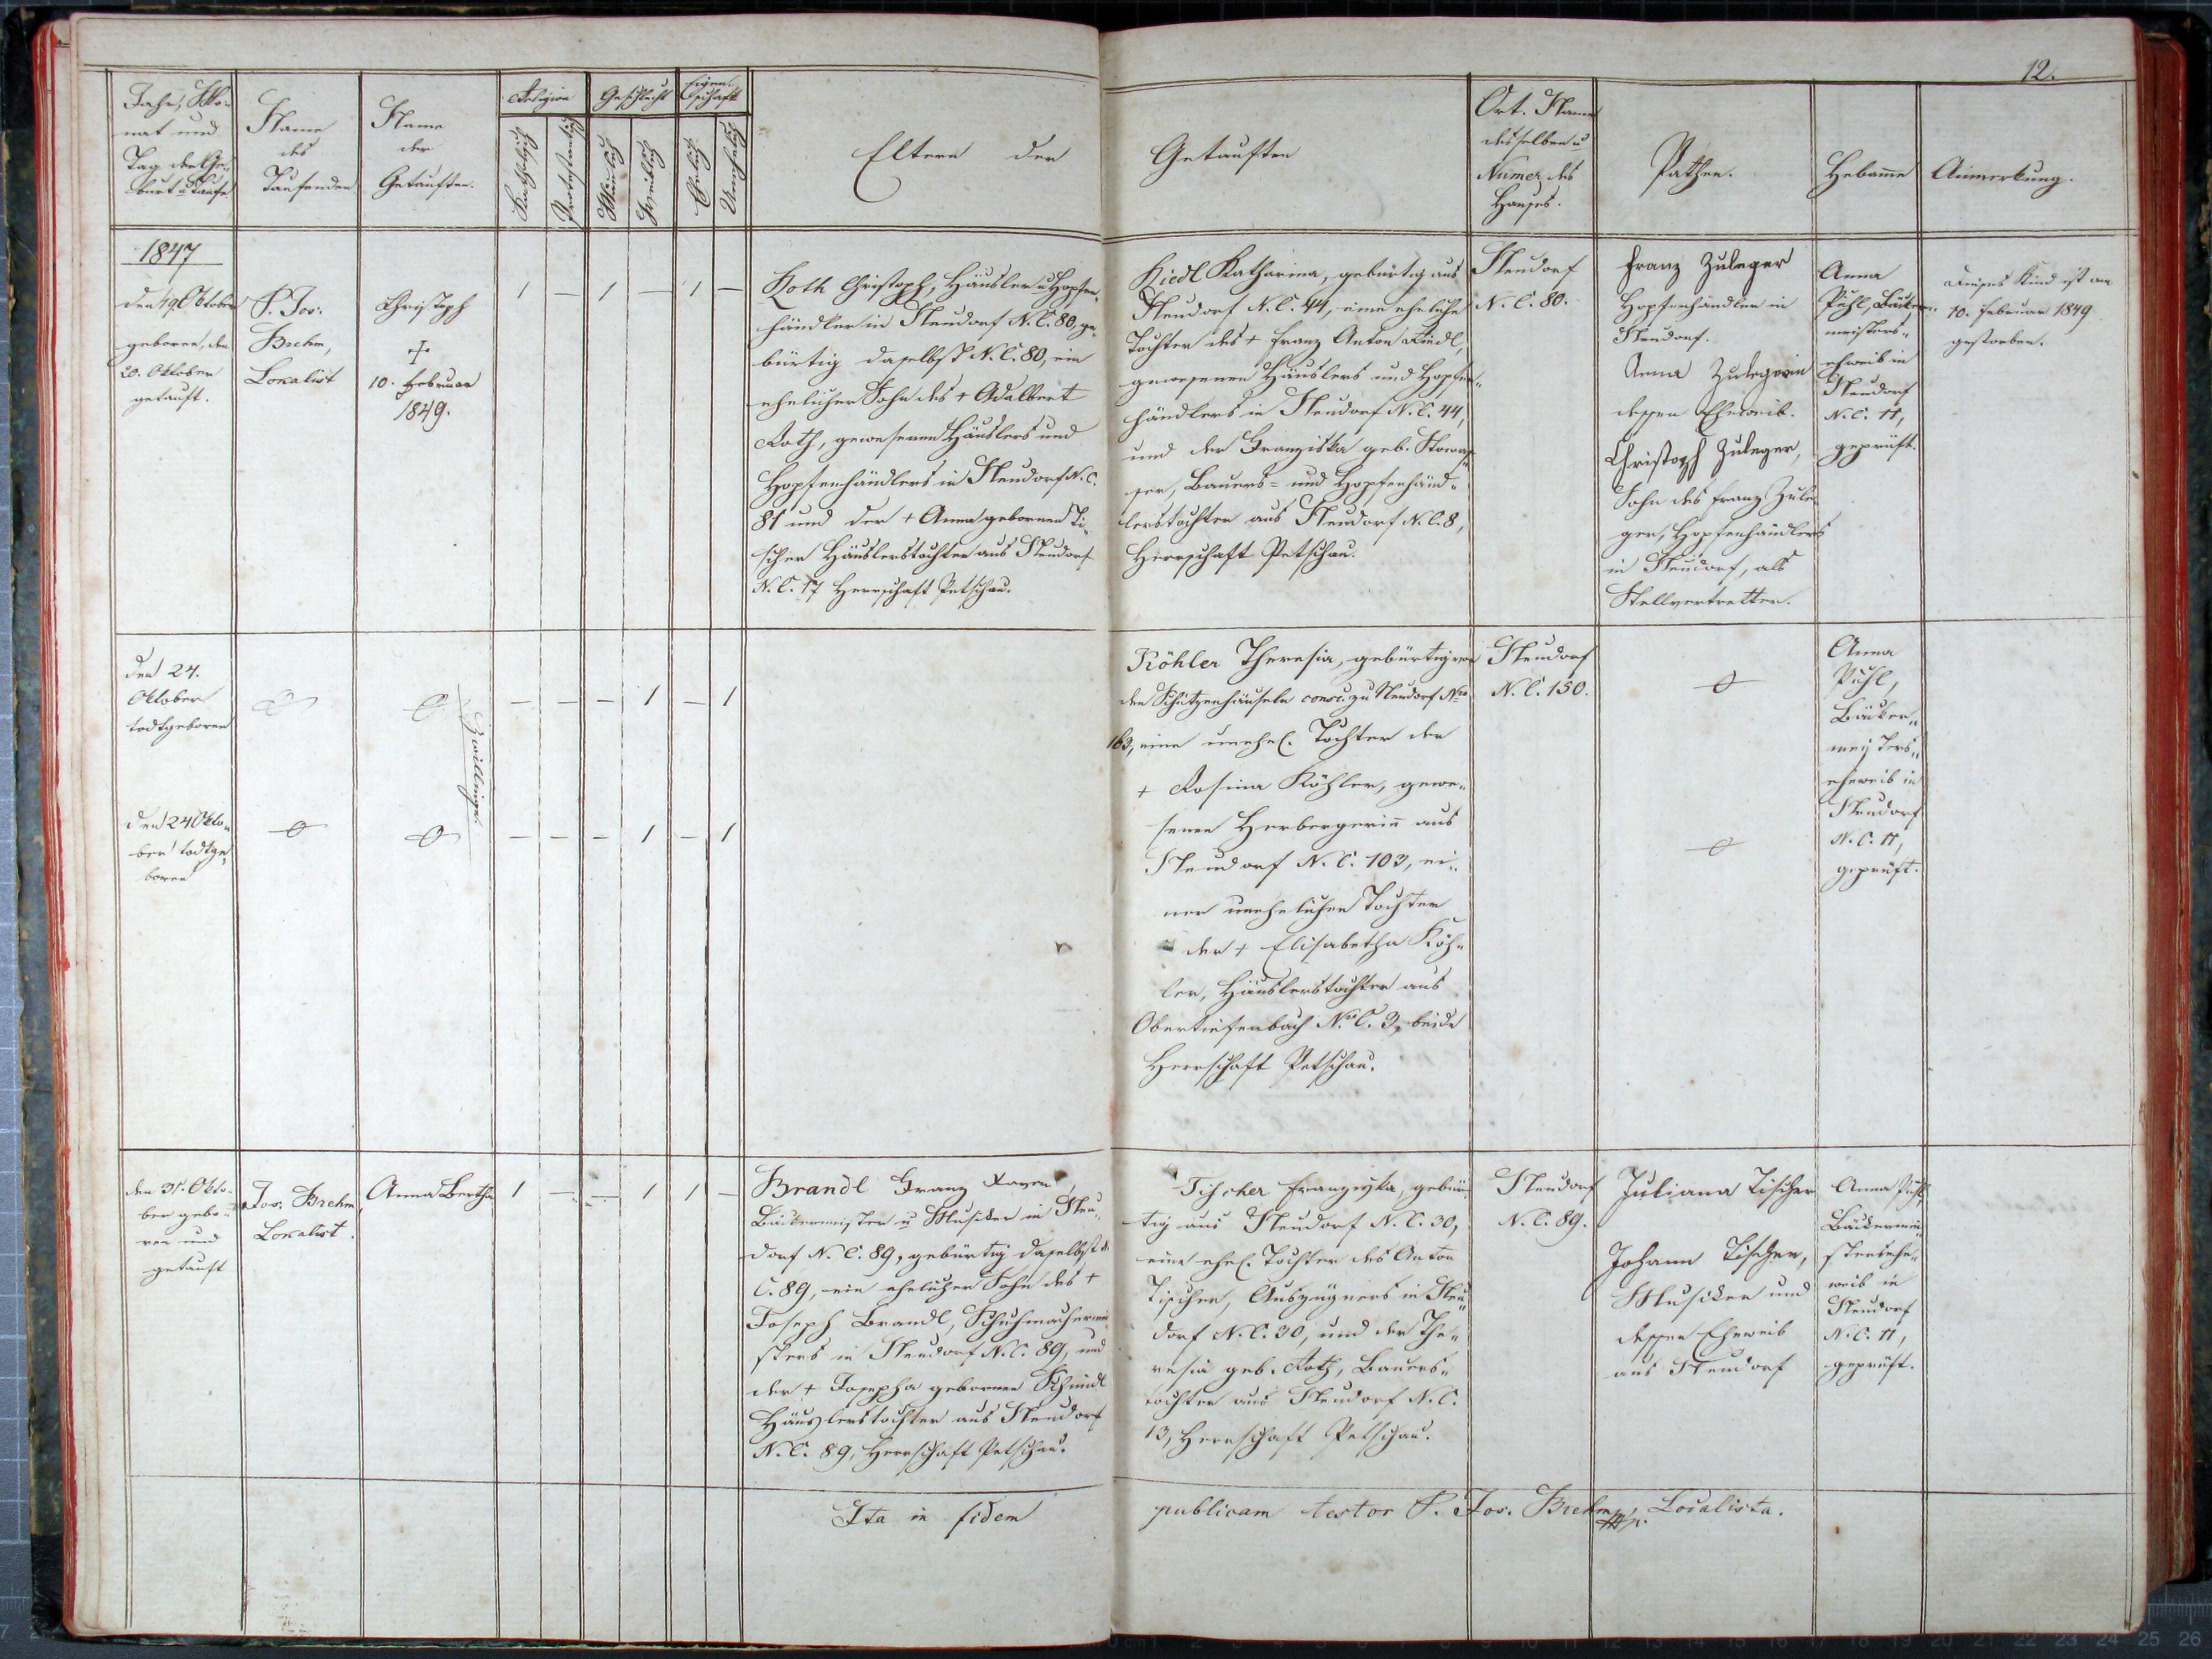 12.
Jahr, Mo-
nat und
Tag der Ge-
burt u Taufe
Name
des
Taufenden
Name
der
Getauften.
Religion
Katholisch
Protestantisch
Geschlecht
Männlich
Weiblich
Eigen-
schaft
Ehelich
Unehelich
Eltern der Getauften
Ort. Name
desselben u
Numer des
Hauses.
Pathen.
Hebamme
Anmerkung.
1847
den 19. Oktober
geboren, den
20. Oktober
getauft.
P. Jos.
Brehm,
Lokalist
Christoph
+
10. Februar
1849.
1 — 1 — 1 —
Roth Christoph, Häusler u Hopfen-
händler in Neudorf N. C. 80, ge-
bürtig daselbst N. C. 80, ein
ehelicher Sohn des + Adalbert
Roth, gewesenen Häuslers und
Hopfenhändlers in Neudorf N. C.
81 und der + Anna gebornen Ti-
scher Häuslerstochter aus Neudorf
N. C. 17 Herrschaft Petschau.
Riedl Katharina, gebürtig aus
Neudorf N. C. 44, eine eheliche
Tochter des + Franz Anton Riedl,
gewesenen Häuslers und Hopfen-
händlers in Neudorf N. C. 44,
und der Franziska geb.
ser, Bauers- und Hopfenhänd-
lerstochter aus Neudorf N. C. 8,
Herrschaft Petschau.
Neudorf
N. C. 80.
Franz Zuleger
Hopfenhändler in
Neudorf.
Anna Zulegerin
dessen Eheweib.
Christoph Zuleger,
Sohn des Franz Zule-
ger, Hopfenhändlers
in Neudorf, als
Stellvertretter.
Anna
Pühl, Bäcker-
meisters-
eheweib in
Neudorf
N. C. 11,
geprüft.
Dieses Kind ist am
10. Februar 1849
gestorben.
den 24.
Oktober
todtgeboren
— — — 1 — 1
den 24 Okto-
ber todtge-
boren
Zwillinge.
— — — 1 — 1
Köhler Theresia, gebürtig von
den Schützenhäuseln consc. zu Neudorf Nro
163, eine unehel. Tochter der
+ Rosina Köhler, gewe-
senen Herbergerin aus
Neudorf N. C. 103, ei-
ner unehelichen Tochter
der + Elisabetha Köh-
ler, Häuslerstochter aus
Obertiefenbach No C. 3, beide
Herrschaft Petschau.
Neudorf
N. C. 150.
Anna
Pühl,
Bäcker-
meisters-
eheweib in
Neudorf
N. C. 11,
geprüft.
den 31. Okto-
ber gebo-
ren und
getauft
Jos. Brehm,
Lokalist.
Anna Bertha
1 — — 1 1 —
Brandl Franz Xaver,
Bäckermeister u Musiker in Neu-
dorf N. C. 89, gebürtig daselbst N.
C. 89, ein ehelicher Sohn des +
Joseph Brandl, Schuhmachermei-
sters in Neudorf N. C. 89, und
der + Josepha gebornen Schmidl
Häuslerstochter aus Neudorf
N. C. 89, Herrschaft Petschau.
Tischer Franziska, gebür-
tig aus Neudorf N. C. 30,
eine ehel. Tochter des Anton
Tischer, Auszügners in Neu-
dorf N. C. 30, und der The-
resia geb. Roth, Bauers-
tochter aus Neudorf N. C.
13, Herrschaft Petschau.
Neudorf
N. C. 89.
Juliana Tischer
Johann Tischer,
Musiker und
dessen Eheweib
aus Neudorf
Anna Pühl,
Bäckermei-
stersehe-
weib in
Neudorf
N. C. 11,
geprüft.
Ita in fidem publicam testor P. Jos. Brehm, Localista.